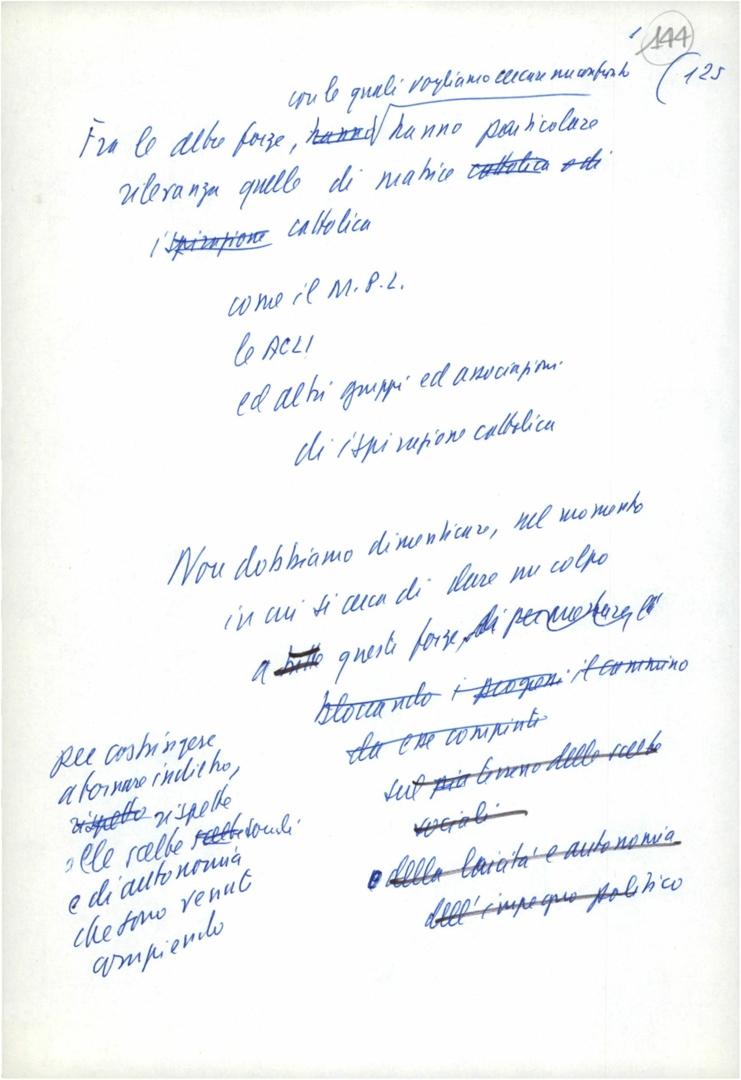 144
(125
con le quali vogliamo cercare un confronto
Fra le altre forze, hanno hanno particolare
rilevanza quelle di matrice cattolica o di
ispirazione cattolica
come il M.P.L.
le ACLI
ed altri gruppi ed associazioni
di ispirazione cattolica
Non dobbiamo dimenticare, nel momento
in cui si cerca di dare un colpo
a tutte queste forze, di
bloccando i il cammino
da esse compiuto
sul più terreno delle scelte
sociali
e della laicità e autonomia
dell'impegno politico
per costringere
a tornare indietro,
rispetto rispetto
alle scelte scelte sociali
e di autonomia
che sono venuti
compiendo